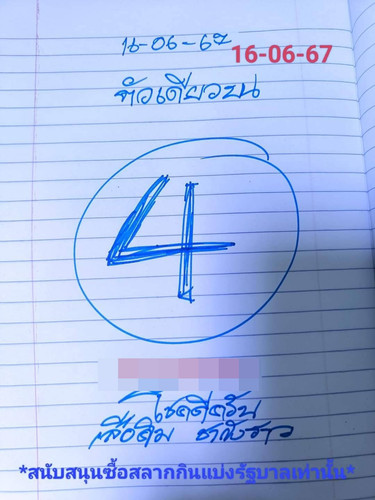 16-06-67
16-06-67
ตัวเดียวบน
4
โชคดีครับ
เสือดิม ชากังราว
*สนับสนุนซื้อสลากกินแบ่งรัฐบาลเท่านั้น*